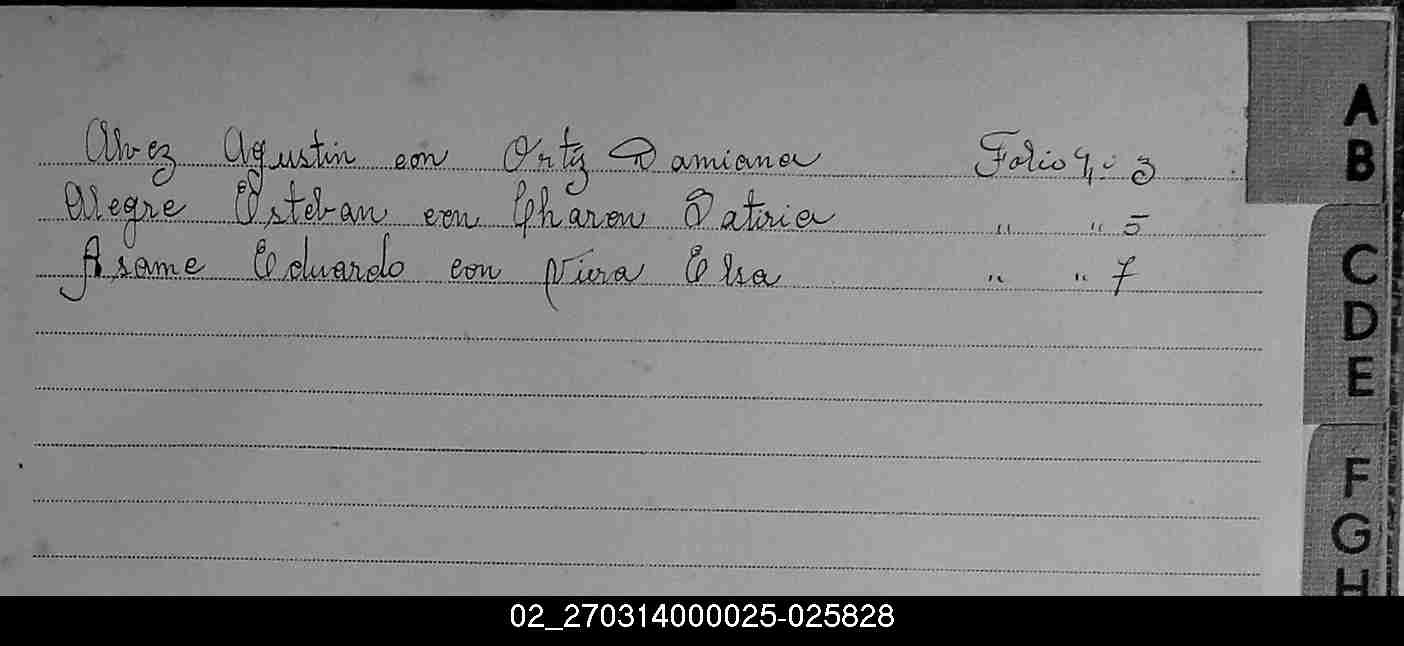 Alvez Agustin con Ortiz Damiana Folio Nº 3
Alegre Esteban con Charon " " 5
Asame Eduardo con Elsa " " 7
A
B
C
D
E
F
G
H
02_270314000025-025828